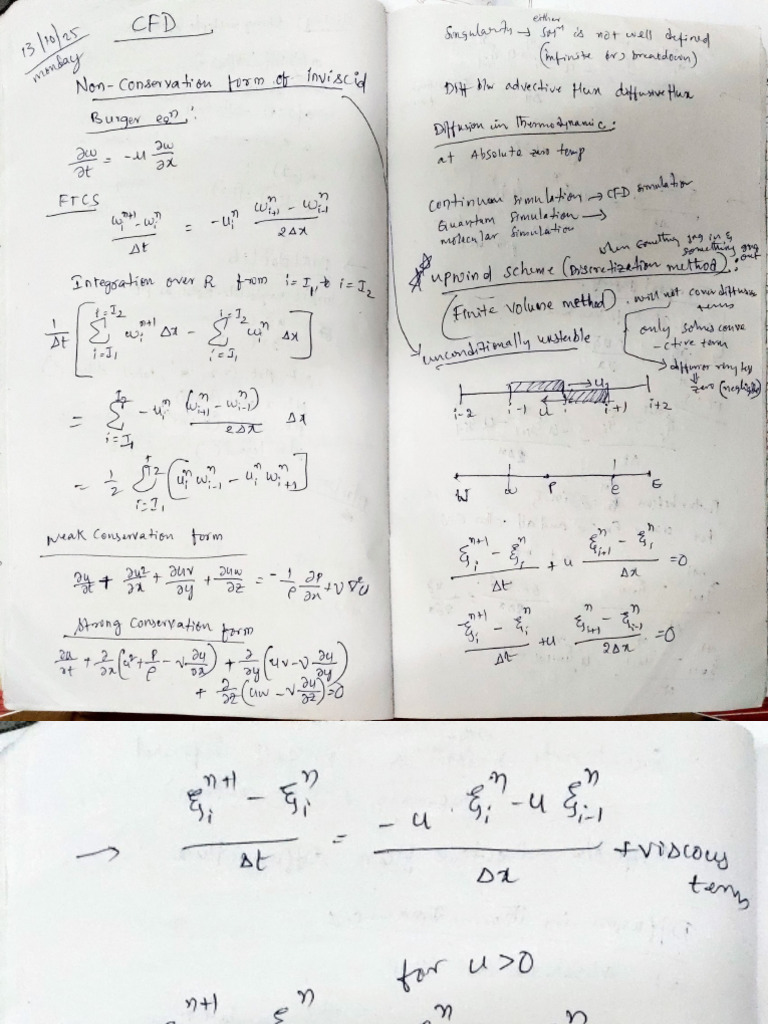 13/10/25
monday
CFD
Non-Conservation form of inviscid
Burger eqn:
∂ω/∂t = -u ∂ω/∂x
FTCS
(ω_i^{n+1} - ω_i^n)/Δt = -u_i^n (ω_{i+1}^n - ω_{i-1}^n)/2Δx
Integration over R from i=I_1 to i=I_2
1/Δt [ Σ_{i=I_1}^{i=I_2} ω_i^{n+1} Δx - Σ_{i=I_1}^{i=I_2} ω_i^n Δx ]
= Σ_{i=I_1}^{I_2} -u_i^n (ω_{i+1}^n - ω_{i-1}^n)/2Δx Δx
= 1/2 Σ_{i=I_1}^{I_2} [ u_i^n ω_{i-1}^n - u_i^n ω_{i+1}^n ]
Weak Conservation form
∂u/∂t + ∂u²/∂x + ∂uv/∂y + ∂uw/∂z = -1/ρ ∂p/∂x + ν∇²u
Strong Conservation form
∂u/∂t + ∂/∂x (u² + p/ρ - ν ∂u/∂x) + ∂/∂y (uv - ν ∂u/∂y)
+ ∂/∂z (uw - ν ∂u/∂z) = 0
either
Singularity → Solⁿ is not well defined
(infinite (or) breakdown)
Diff b/w advective flux diffusive flux
Diffusion in thermodynamic:
at Absolute zero temp
Continuum simulation → CFD simulation
Quantum simulation →
molecular simulation
when something goes in &
something going out
upwind scheme (Discretization method):
(Finite volume method). will not cover diffusive
terms
only solves conve
-ctive term
→ diffusion very less
⇓
zero (negligible)
unconditionally unstable
u
i-2 i-1 u i i+1 i+2
W w P e E
(ξ_i^{n+1} - ξ_i^n)/Δt + u (ξ_{i+1}^n - ξ_i^n)/Δx = 0
(ξ_i^{n+1} - ξ_i^n)/Δt + u (ξ_{i+1}^n - ξ_{i-1}^n)/2Δx = 0
→ (ξ_i^{n+1} - ξ_i^n)/Δt = (-u · ξ_i^n - u ξ_{i-1}^n)/Δx + viscous
terms
for u>0